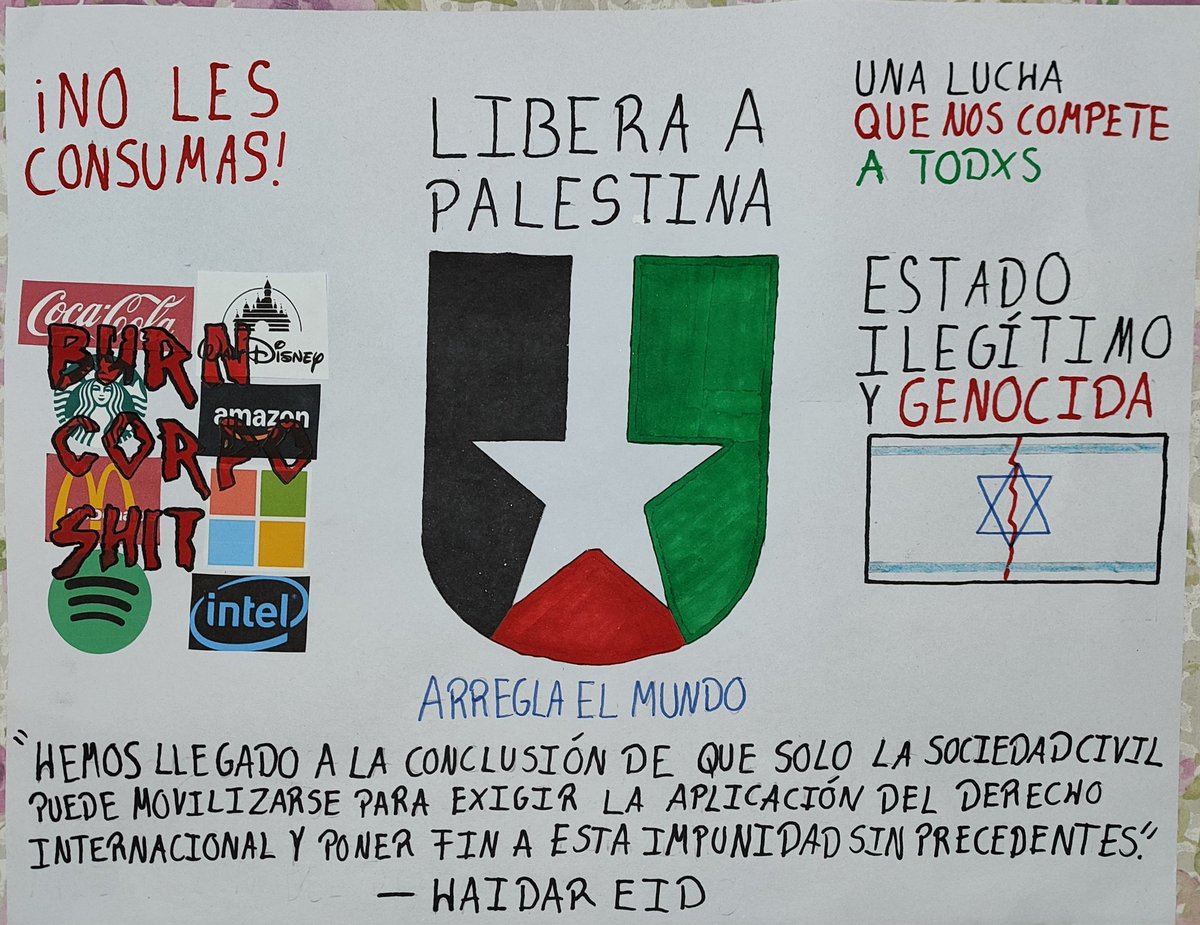 ¡NO LES
CONSUMAS!
LIBERA A
PALESTINA
UNA LUCHA
QUE NOS COMPETE
A TODXS
Coca-Cola
WALT DISNEY
BURN
amazon
CORPO
SHIT
intel
ESTADO
ILEGÍTIMO
Y GENOCIDA
ARREGLA EL MUNDO
"HEMOS LLEGADO A LA CONCLUSIÓN DE QUE SOLO LA SOCIEDAD CIVIL
PUEDE MOVILIZARSE PARA EXIGIR LA APLICACIÓN DEL DERECHO
INTERNACIONAL Y PONER FIN A ESTA IMPUNIDAD SIN PRECEDENTES."
— HAIDAR EID